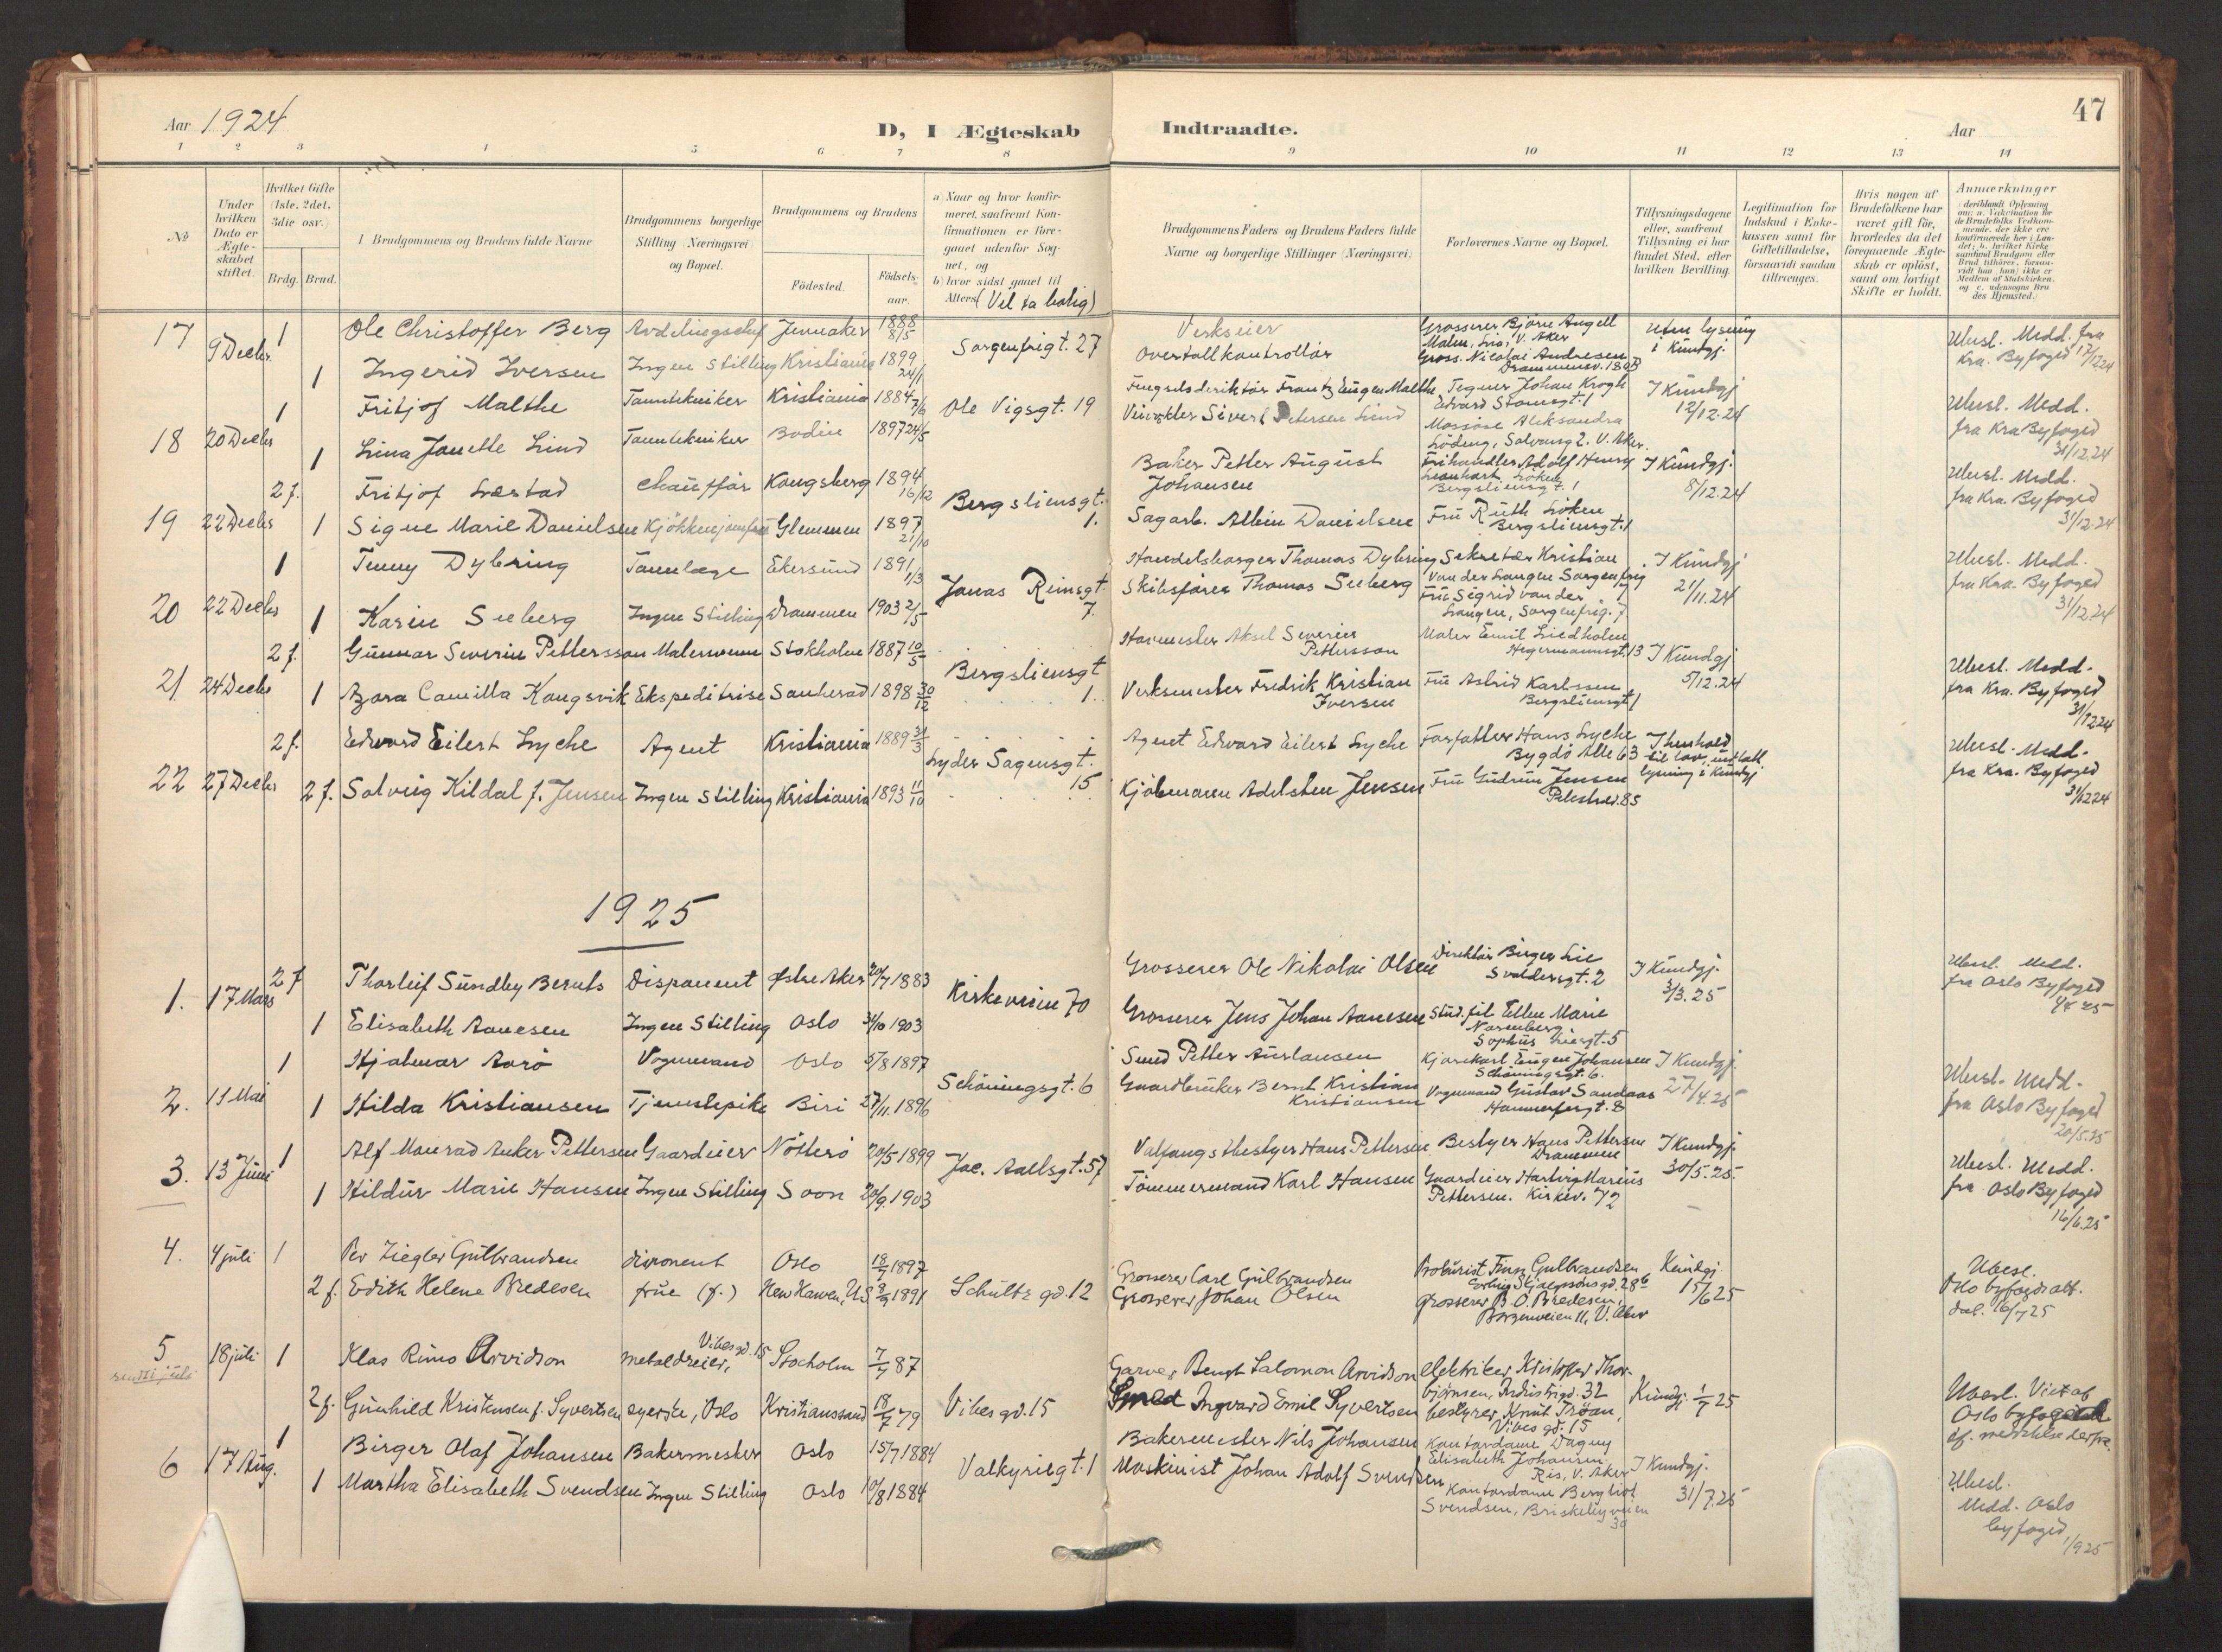 Aar 1924
D, I Ægteskab Indtraadte.
Aar
47
1 2 3 4 5 6 7 8 9 10 11 12 13 14
No
Under hvilken Dato er Ægteskabet stiftet.
Hvilket Gifte (1ste, 2det, 3die osv.)
Brdg. Brud.
Brudgommens og Brudens fulde Navne
Brudgommens borgerlige Stilling (Næringsvei) og Bopæl.
Brudgommens og Brudens
Fødested.
Fødselsaar.
a) Naar og hvor konfirmeret, saafremt Konfirmationen er foregaaet udenfor Sognet, og
b) hvor sidst gaaet til Alters (Vel ta bolig)
Brudgommens Faders og Brudens Faders fulde Navne og borgerlige Stillinger (Næringsvei).
Forlovernes Navne og Bopæl.
Tillysningsdagene eller, saafremt Tillysning ei har fundet Sted, efter hvilken Bevilling.
Legitimation for Indskud i Enkekassen samt for Giftetilladelse, forsaavidt saadan tiltrænges.
Hvis nogen af Brudefolkene har været gift før, hvorledes da det foregaaende Ægteskab er opløst, samt om lovligt Skifte er holdt.
Anmerkninger
17 9 Decbr 1 Ole Christoffer Berg Avdelingschef Jevnaker 1888 8/5 Sorgenfrigt. 27 Verkseier Grosserer Bjørn Angell
V. Aker Uten lysning i Kundgj. Utest. Medd. fra Kra. Byfoged
1 Ingerid Iversen Ingen Stilling Kristiania 1899 24/1 Overtollkontrollør Gross. Nicolai Andresen Drammensv.
1 Fritjof Malthe Tanntekniker Kristiania 1884 Ole Vigsgt. 19 Frantz Eugen Malthe Johan Krogh I Kundgj 12/12.24 Utest. Medd. fra Kra Byfoged 31/12.24
18 20 Decbr 1 Lina Jonette Lind Tanntekniker Bodin 1897 24/5 Sivert Petersen Lind Massøse Aleksandra
V. Aker.
2 f. Fritjof Løestad Chauffør Kongsberg 1894 16/12 Bergsliensgt. 1. Baker Petter August Johansen Adolf Henry Løken Bergsliensgt. 1 I Kundgj. 8/12.24 Utest. Medd. fra Kra. Byfoged 31/12.24
19 22 Decbr 1 Signe Marie Danielsen Kjøkkenjomfru Glemmen 1897 21/10 Sagarb. Albin Danielsen Fru Ruth Løken Bergsliensgt. 1
1 Tenny Dybring Tannlæge Ekersund 1891 1/3 Jonas Reinsgt. 7. Handelsborger Thomas Dybring Sekretær Kristian van der Sorgenfrig 7 I Kundgj 21/11.24 Utest. Medd. fra Kra. Byfoged 31/12.24
20 22 Decbr 1 Karin Seeberg Ingen Stilling Drammen 1903 2/5 Skibsfører Thomas Seeberg Fru Sigrid van der Sorgenfrig. 7.
2 f. Gunnar Severin Pettersson Malersvenn Stokholm 1887 10/5 Bergsliensgt 1. Aksel Severin Pettersson Maler Emil Liedholm Hegermannsgt. 13 I Kundgj 5/12.24 Utest. Medd. fra Kra. Byfoged 31/12 24
21 24 Decbr 1 Azora Camilla Kongsvik Ekspeditrise Sauherad 1898 30/12 Verksmester Fredrik Kristian Iversen Fru Astrid Karlssen Bergsliensgt 1
2 f. Edvard Eilert Lyche Agent Kristiania 1889 31/3 Lyder Sagensgt. 15 Agent Edvard Eilert Lyche Forfatter Hans Lyche Bygdø Alle 63 I henhold til lov, lysning i Kundgj Utest. Medd. fra Kra. Byfoged 31/12 24
22 27 Decbr 2 f. Solveig Kildal f. Jensen Ingen Stilling Kristiania 1893 11/10 Kjøbmann Adelsten Jensen Fru Gudrun Jensen Pilestræd. 85
1925
1. 17 Mars 2 f Thorleif Sundby Bernts Disponent Østre Aker 20/7 1883 Kirkeveien 70 Grosserer Ole Nikolai Olsen Direktør Birger Lie Svoldersgt. 2 I Kundgj. 3/3. 25 Utest. Medd. fra Oslo Byfoged 4/4 25
1 Elisabeth Aanesen Ingen Stilling Oslo 31/10 1903 Grosserer Jens Johan Aanesen Stud. fil Ellen Marie Sophus Liesgt. 5
1 Hjalmar Aarø Vognmand Oslo 5/8 1897 Schøningsgt. 6 Smed Petter Eugen Johansen Schøningsgt. 6. I Kundgj. 27/4. 25 Utest. Medd. fra Oslo Byfoged 20/5.25
2. 11 Mai 1 Hilda Kristiansen Tjenestepike Biri 27/11. 1896 Gaardbruker Bernt Kristian Kristiansen Vognmand Gustav Sandaas Hammerfestgt. 8
3. 13 Juni 1 Alf Monrad Anker Pettersen Gaardeier Nøtterø 20/5 1899 Jac. Aallsgt. 57 Valfangstbestyer Hans Pettersen Bestyer Hans Pettersen Drammen I Kundgj. 30/5. 25. Utest. Medd. fra Oslo Byfoged 16/6.25
1 Hildur Marie Hansen Ingen Stilling Soon 20/9. 1903 Tømmermand Karl Hansen Gaardeier Marius Pettersen. Kirkev. 72
4. 4 juli 1 Per Ziegler Gulbrandsen disponent Oslo 18/7 1897 Grosserer Carl Gulbrandsen Prokurist Finn Gulbrandsen Erling Skjalgssons gd. 28 b Kundgj 15/6 25 Utest. Oslo byfogdratt.
2 f. Edith Helene Bredesen frue (f.) New Hawen, U.S. 1891 Schultz gd. 12 Grosserer Johan Olsen Grosserer B. O. Bredesen, V. Aker
5 18 juli 1 Klas Rimo Arvidson metaldreier, Vibes gd. 15 Stocholm 7/7 87 Garver Bengt Salomon Arvidson elektriker Kristoffer Thorbjørnsen, Industrigd. 32 Kundgj. 1/7 25
2 f. Gunhild Kristensen f. Syvertsen syerske, Oslo Kristianssand 18/7 79 Vibes gd. 15 Smed Ingvard Emil Syvertsen bestyrer Knut Trøan, Vibes gd. 15 Utest. Vist af Oslo
6 17 Aug. 1 Birger Olaf Johansen Bakermester Oslo 15/7 1884 Valkyriegt. 1 Bakermester Nils Johansen Kontordame Dagny Elisabeth Johansen Ris, V. Aker I Kundgj. 31/7.25
1 Martha Elisabeth Svendsen Ingen Stilling Oslo 10/8 1884 Maskinist Johan Adolf Svendsen Kontordame Bergliot Svendsen, Briskebyveien 30 Utest. Medd. Oslo byfoged 1/9 25